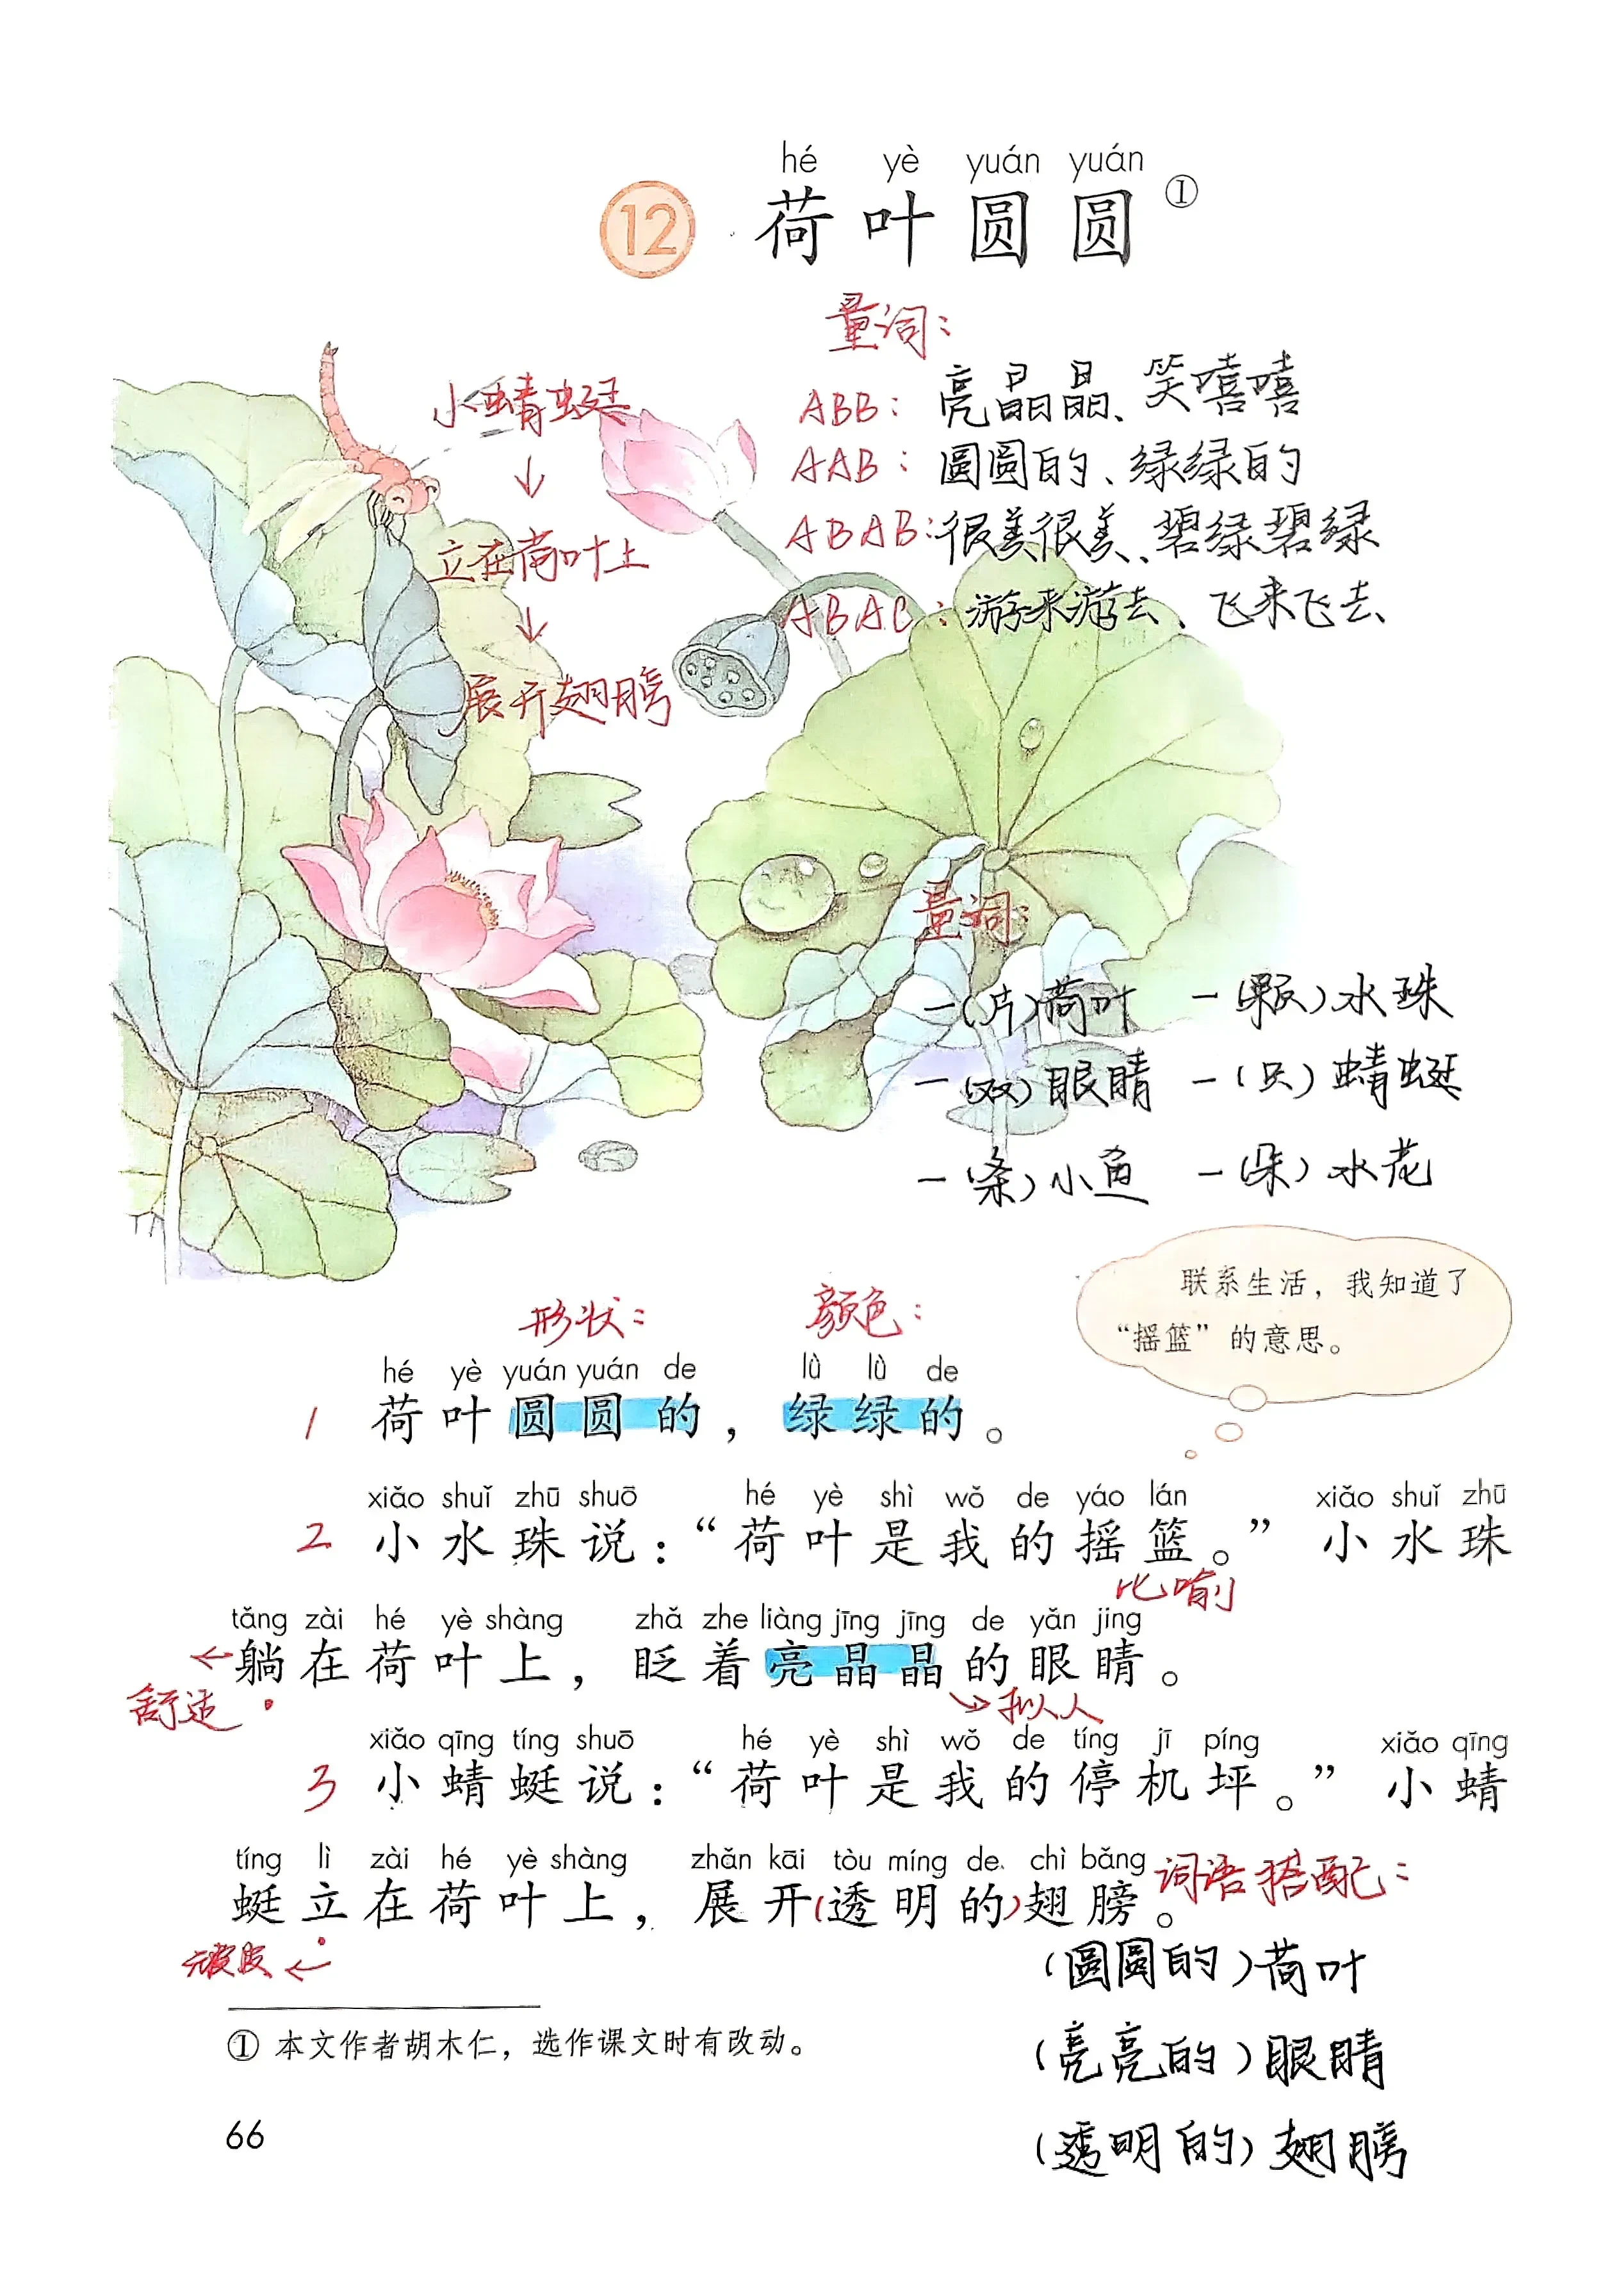 hé yè yuán yuán
12 荷叶圆圆①
量词：
ABB：亮晶晶、笑嘻嘻
AAB：圆圆的、绿绿的
ABAB：很美很美、碧绿碧绿
ABAC：游来游去、飞来飞去
小蜻蜓
↓
立在荷叶上
↓
展开翅膀
量词：
一（片）荷叶 一（颗）水珠
一（双）眼睛 一（只）蜻蜓
一（条）小鱼 一（朵）水花
联系生活，我知道了
“摇篮”的意思。
形状： 颜色：
hé yè yuán yuán de lǜ lǜ de
1 荷叶圆圆的，绿绿的。
xiǎo shuǐ zhū shuō hé yè shì wǒ de yáo lán xiǎo shuǐ zhū
2 小水珠说：“荷叶是我的摇篮。”小水珠
比喻
tǎng zài hé yè shàng zhǎ zhe liàng jīng jīng de yǎn jing
←躺在荷叶上，眨着亮晶晶的眼睛。
舒适 →拟人
xiǎo qīng tíng shuō hé yè shì wǒ de tíng jī píng xiǎo qīng
3 小蜻蜓说：“荷叶是我的停机坪。”小蜻
tíng lì zài hé yè shàng zhǎn kāi tòu míng de chì bǎng
蜓立在荷叶上，展开（透明的）翅膀。
词语搭配：
顽皮←
（圆圆的）荷叶
（亮亮的）眼睛
（透明的）翅膀
① 本文作者胡木仁，选作课文时有改动。
66